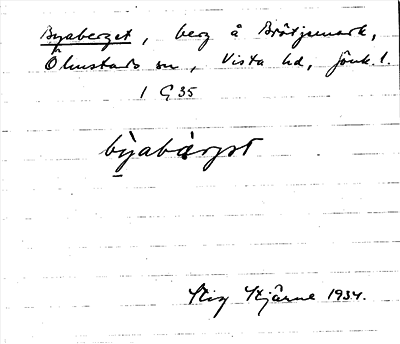 Byaberget, berg å Brötjemark,
Ölmstads sn, Vista hd, Jönk. l.
1 G 35
byabärgət
Stig Stjärne 1934.